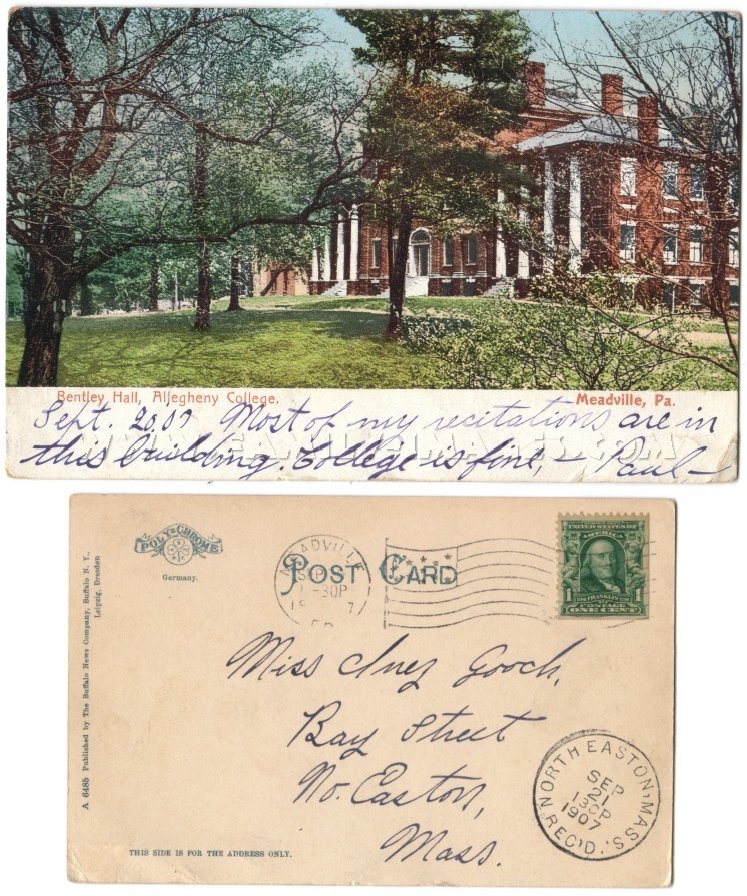 Bentley Hall, Allegheny College.
Meadville, Pa.
Sept. 20.07 Most of my recitations are in
this building. College is fine, – Paul –
POLY-CHROME
Germany.
MEADVILLE
SEP
1-30P
PA.
POST CARD
SERIES 1902
UNITED STATES OF
AMERICA
1 1
FRANKLIN
POSTAGE
ONE CENT
A 6485 Published by The Buffalo News Company, Buffalo N. Y.,
Leipzig, Dresden
Miss Inez Gooch,
Bay Street
No. Easton,
Mass.
NORTH EASTON, MASS.
SEP
21
1907
REC'D.
THIS SIDE IS FOR THE ADDRESS ONLY.